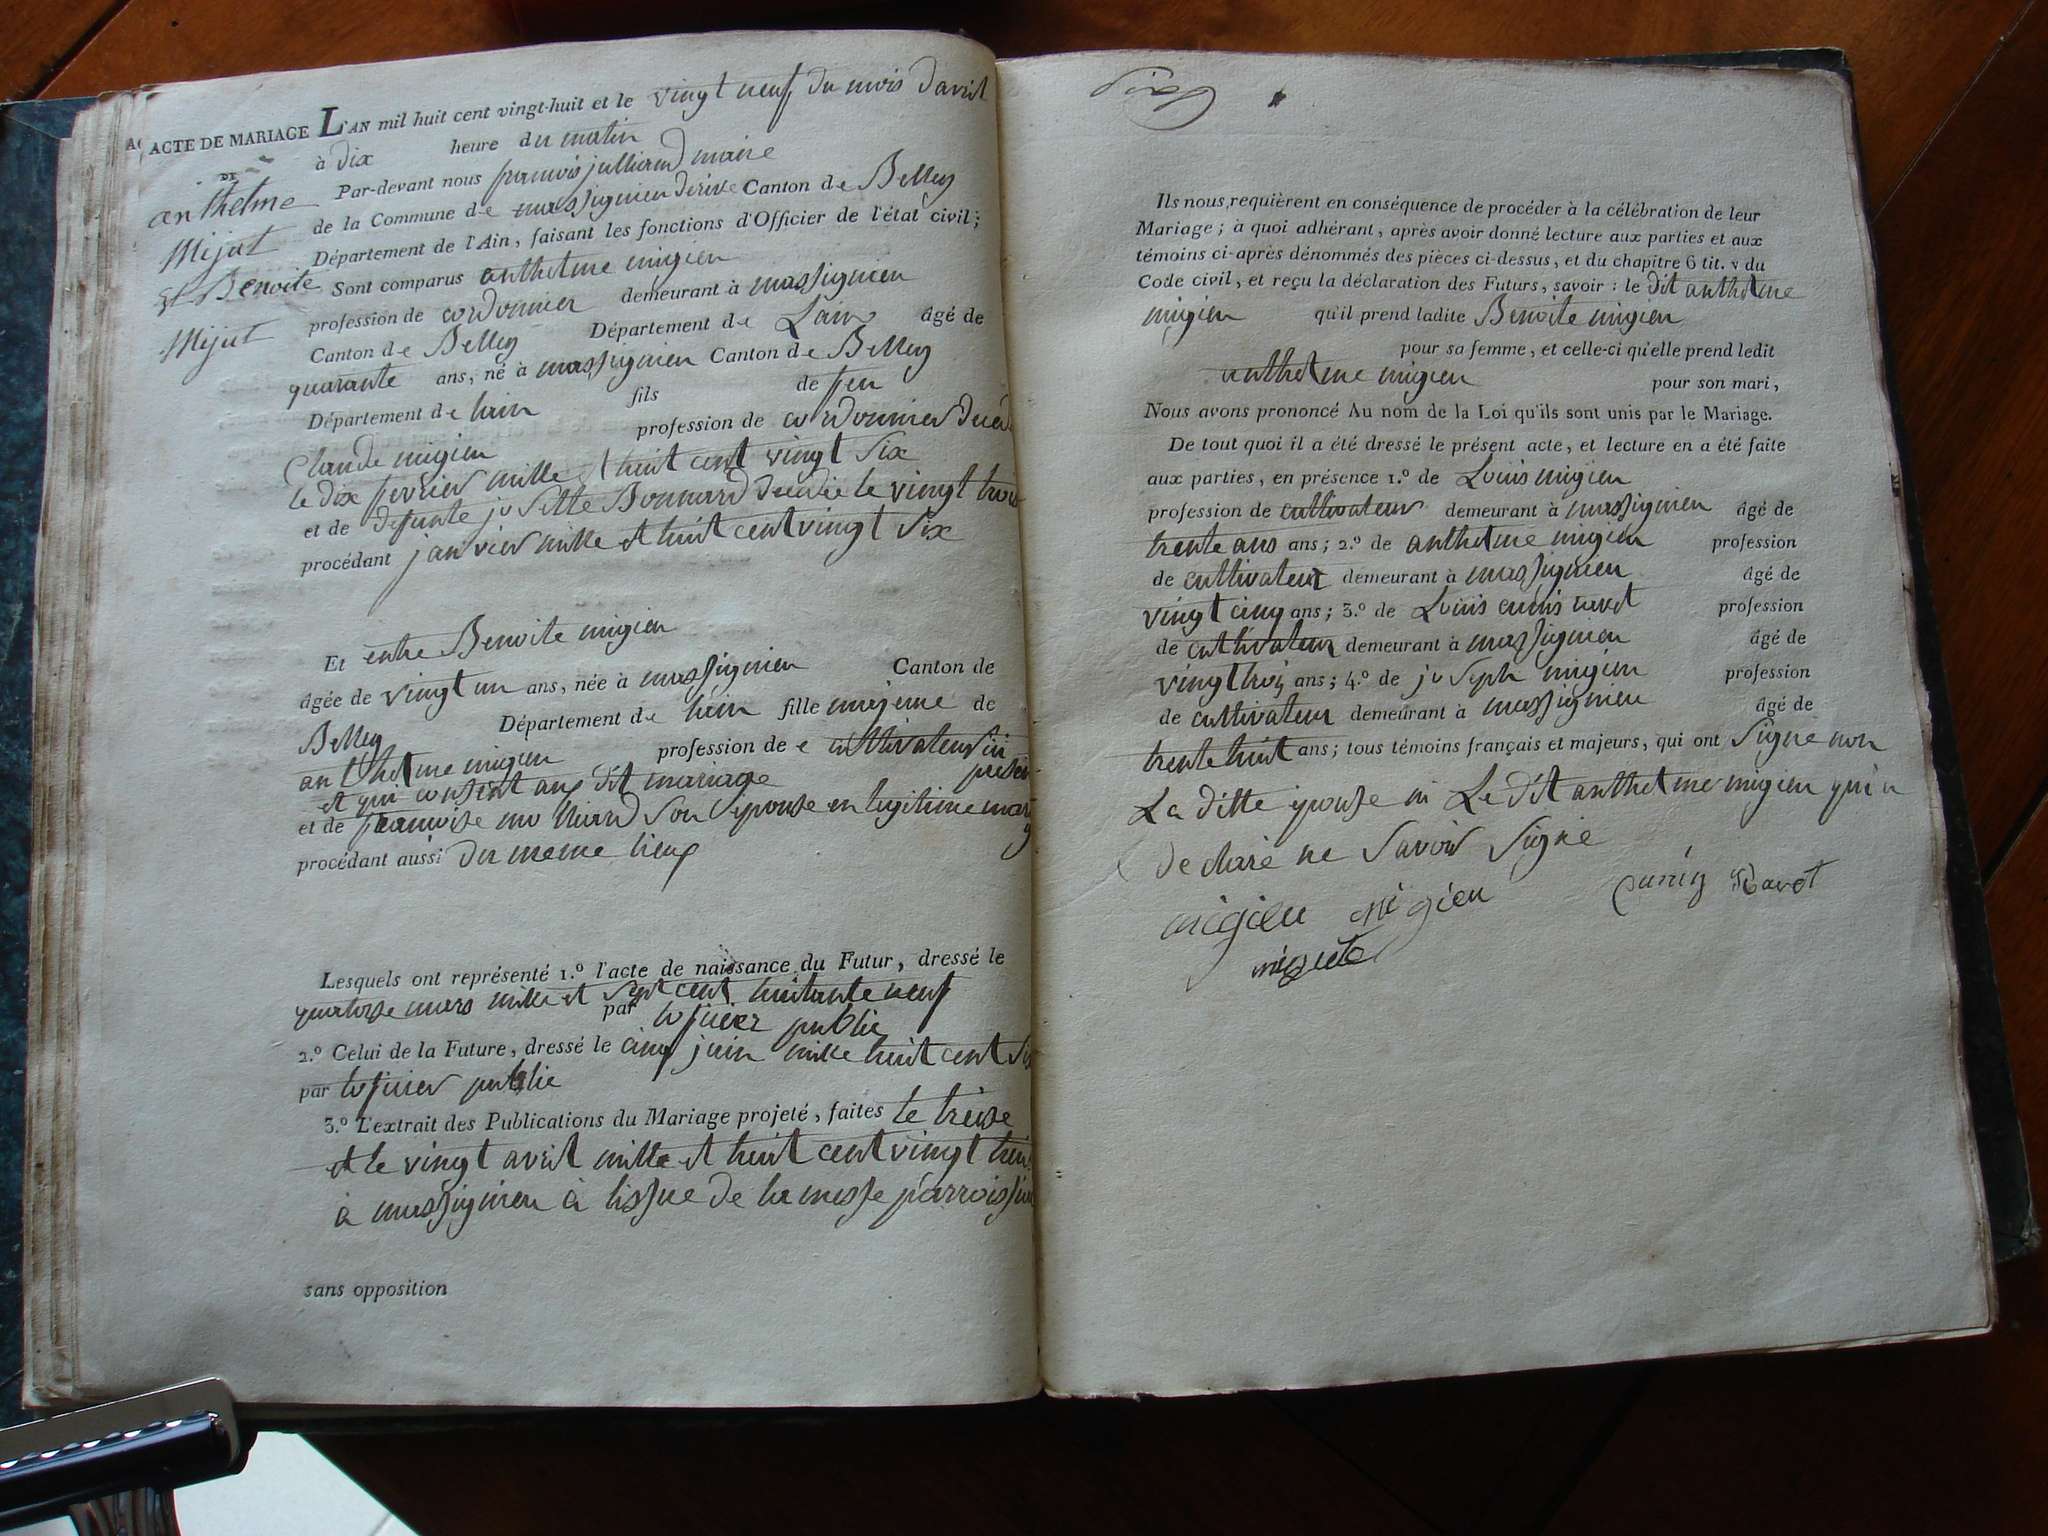 ACTE DE MARIAGE
DE
anthelme
Mijat
et Benoite
Mijat
L'AN mil huit cent vingt-huit et le vingt neuf du mois davril
à dix heure du matin
Par-devant nous francois julliand maire
de la Commune de massignieu derive Canton de Belley
Département de l'Ain, faisant les fonctions d'Officier de l'état civil;
Sont comparus anthelme migieu
profession de cordonnier demeurant à massignieu
Canton de Belley Département de Lain âgé de
quarante ans, né à massignieu Canton de Belley
Département de lain fils de feu
Claude migieu profession de cordonnier
le dix fevrier mille et huit cent vingt six
et de defunte josette Bonnard decedée le vingt trois
procédant janvier mille et huit cent vingt six
Et entre Benoite migieu
âgée de vingt un ans, née à massignieu Canton de
Belley Département de lain fille de
anthelme migieu profession de cultivateur
et qui consent au dit mariage
et de francoise son epouse en legitime
procédant aussi du meme lieux
Lesquels ont représenté 1.º l'acte de naissance du Futur, dressé le
quatorse mars mille et sept cent huitante neuf
par lofficier public
2.º Celui de la Future, dressé le cinq juin mille huit cent
par lofficier public
3.º L'extrait des Publications du Mariage projeté, faites le treise
et le vingt avril mille et huit cent vingt huit
à massignieu à lissue de la messe
sans opposition
Ils nous requièrent en conséquence de procéder à la célébration de leur
Mariage; à quoi adhérant, après avoir donné lecture aux parties et aux
témoins ci-après dénommés des pièces ci-dessus, et du chapitre 6 tit. v du
Code civil, et reçu la déclaration des Futurs, savoir: le dit anthelme
migieu qu'il prend ladite Benoite migieu
pour sa femme, et celle-ci qu'elle prend ledit
anthelme migieu pour son mari,
Nous avons prononcé Au nom de la Loi qu'ils sont unis par le Mariage.
De tout quoi il a été dressé le présent acte, et lecture en a été faite
aux parties, en présence 1.º de Louis migieu
profession de cultivateur demeurant à massignieu âgé de
trente ans ans; 2.º de anthelme migieu profession
de cultivateur demeurant à massignieu âgé de
vingt cinq ans; 3.º de Louis ravet profession
de cultivateur demeurant à massignieu âgé de
vingt trois ans; 4.º de joseph migieu profession
de cultivateur demeurant à massignieu âgé de
trente huit ans; tous témoins français et majeurs, qui ont signé non
La ditte epouse ni Le dit anthelme migieu
declaré ne savoir signé
migieu migieu Ravet